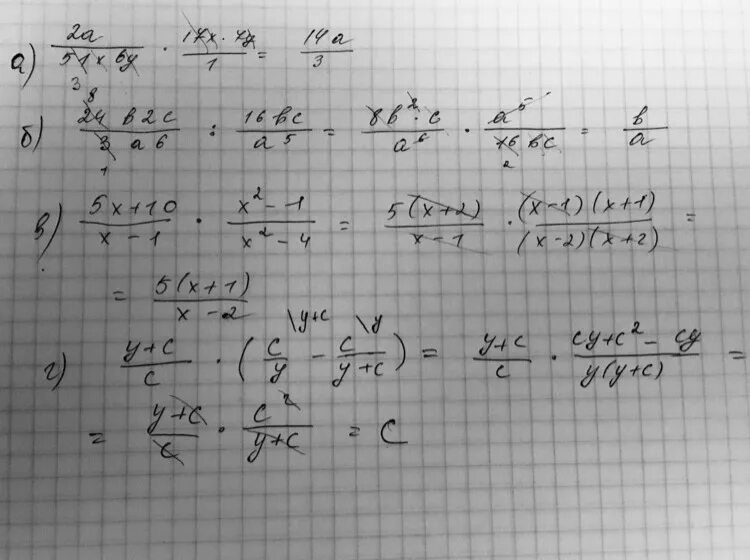 а) 2a / 51x 6y · 17x · 7y / 1 = 14a / 3
3
8
б) 24 b2c / 3 a6 : 16bc / a^5 = 8b^2 · c / a^6 · a^5 / 16bc = b / a
1 2
в) 5x+10 / x-1 · x^2-1 / x^2-4 = 5(x+2) / x-1 · (x-1)(x+1) / (x-2)(x+2) =
= 5(x+1) / x-2
г) y+c / c · ( c / y \y+c - c / y+c \y ) = y+c / c · cy+c^2-cy / y(y+c) =
= y+c / c · c^2 / y+c = c